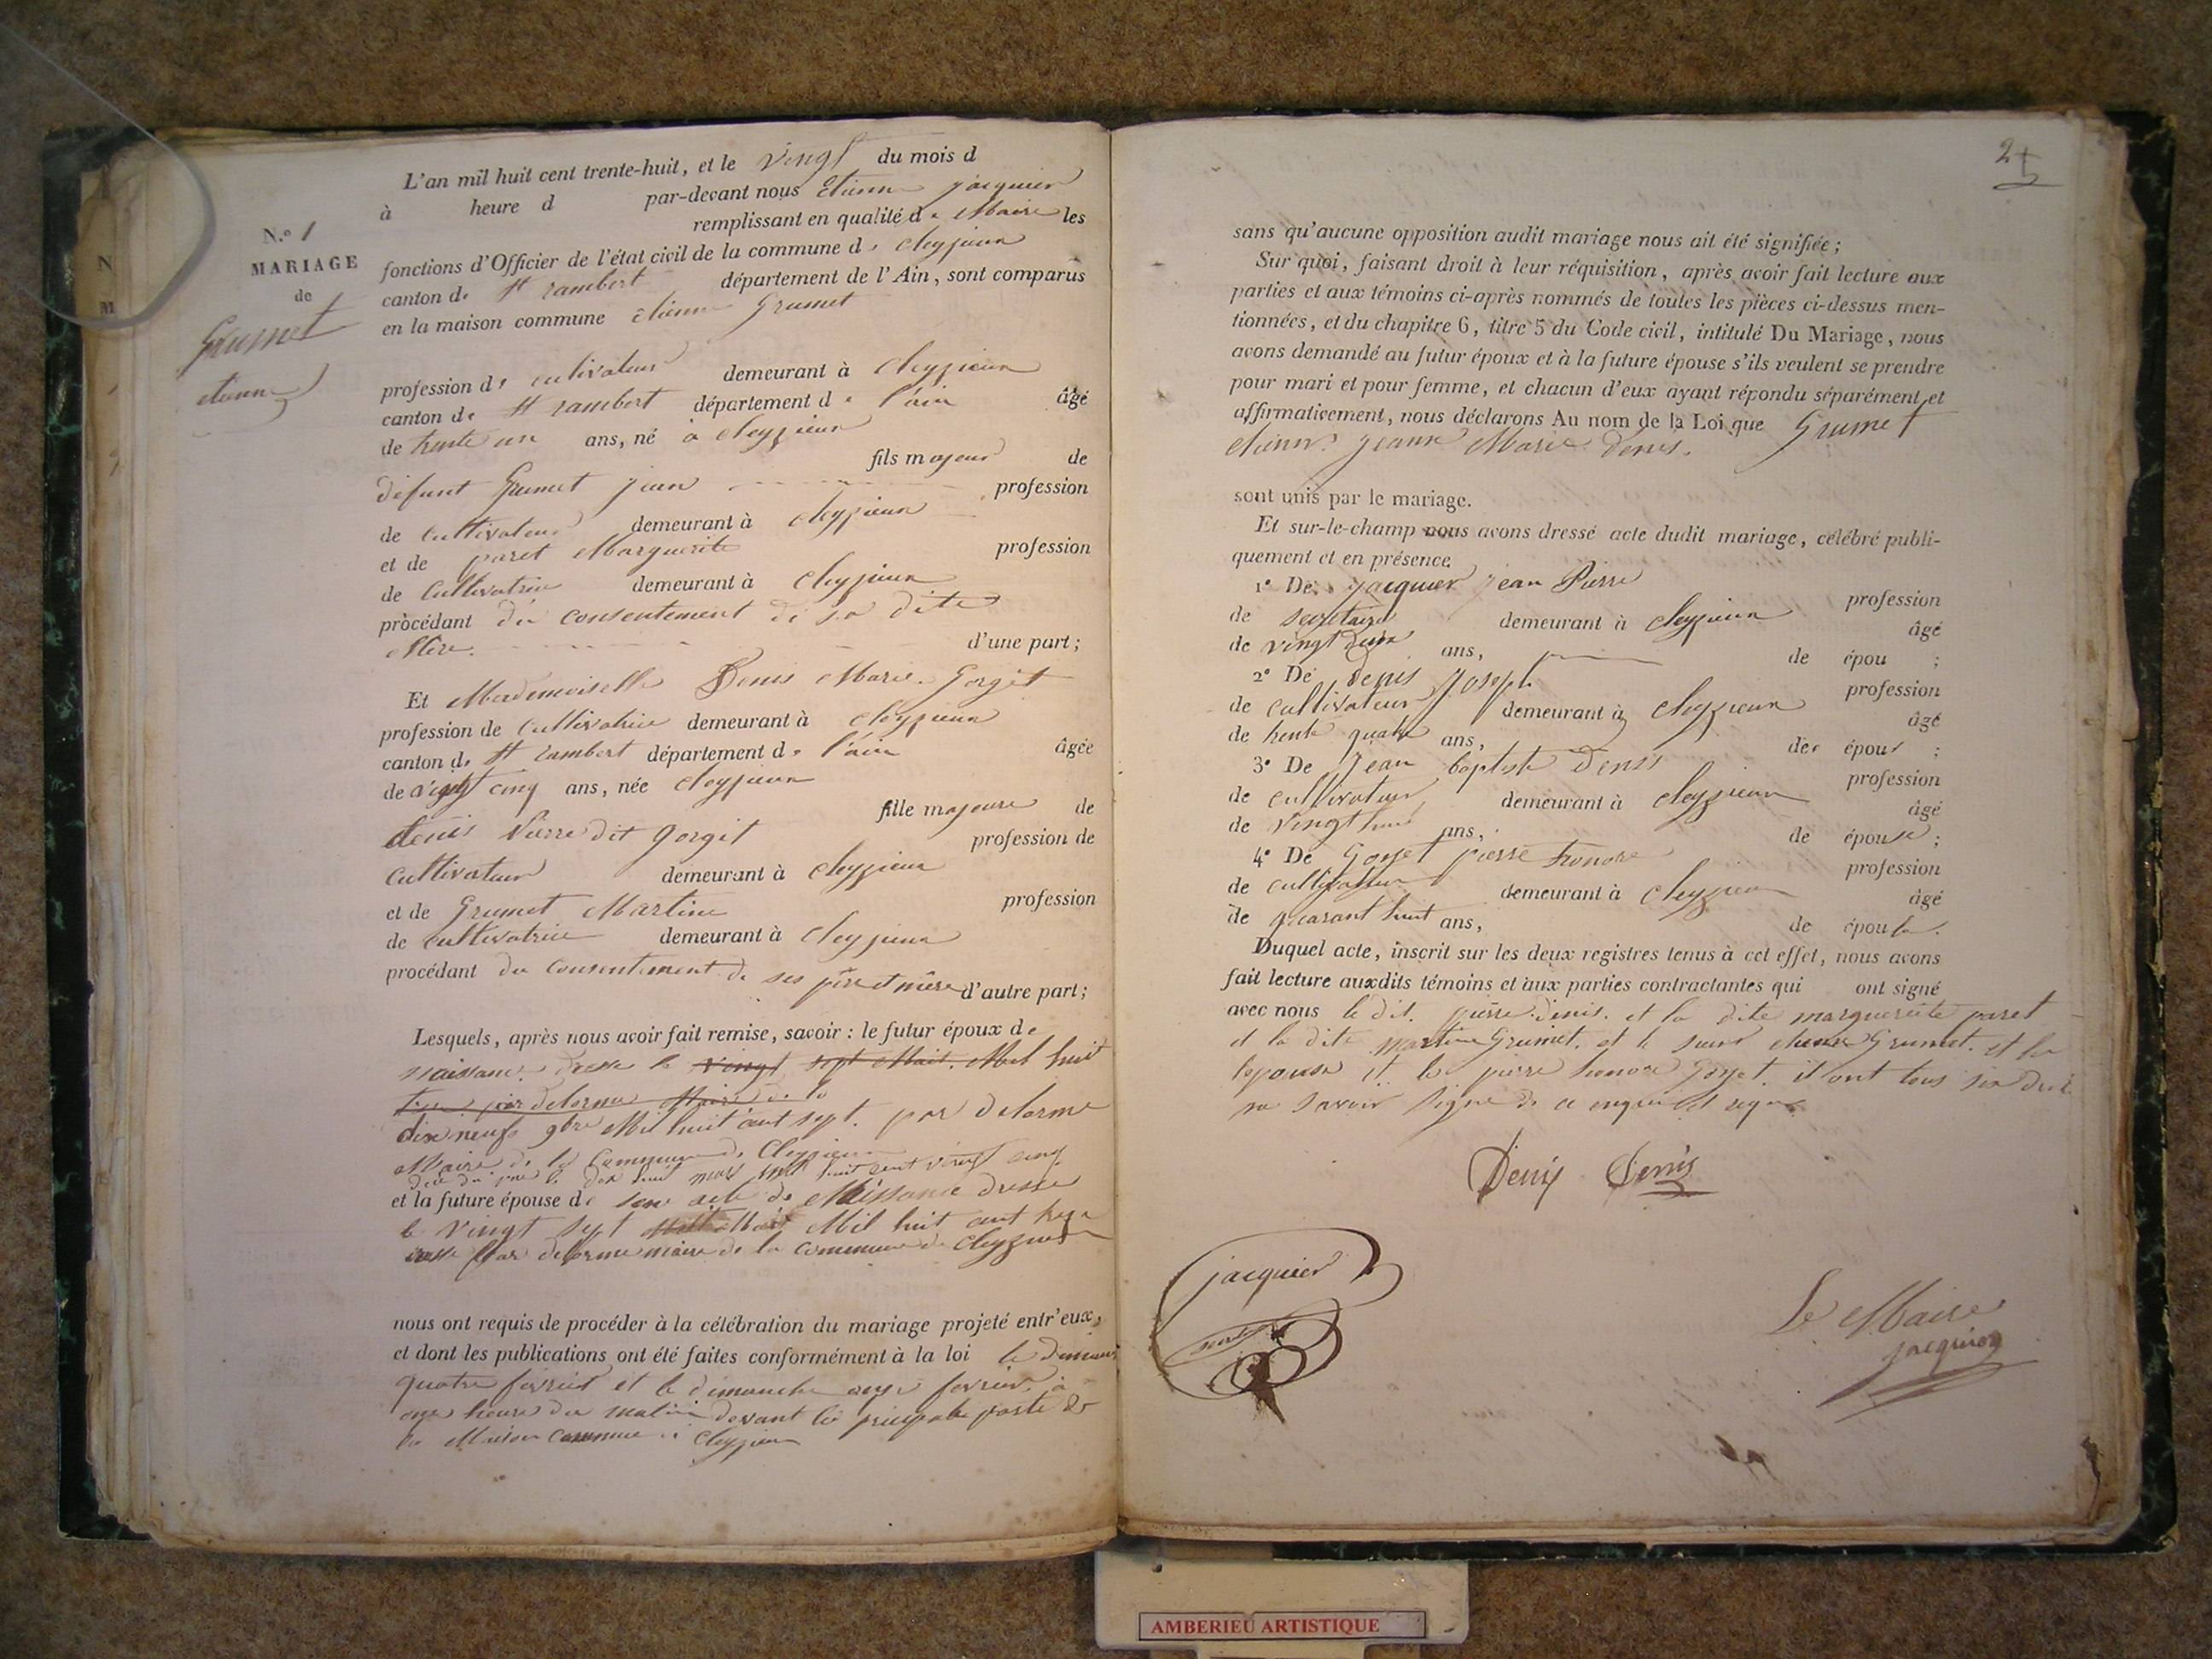 L'an mil huit cent trente-huit, et le vingt du mois d
à heure d par-devant nous Etienne jacquier
remplissant en qualité de Maire les
fonctions d'Officier de l'état civil de la commune de cleyzieux
canton de St rambert département de l'Ain, sont comparus
en la maison commune étienne Grumet
N.º 1
MARIAGE
de
Grumet
etienne
N
M
profession de cultivateur demeurant à cleyzieux
canton de St rambert département de l'ain âgé
de trente un ans, né à cleyzieux
fils majeur de
défunt Grumet jean profession
de cultivateur demeurant à cleyzieux
et de paret Marguerite profession
de Cultivatrice demeurant à cleyzieux
procédant du consentement de sa dite
Mère. d'une part;
Et Mademoiselle Denis Marie. Gorgit
profession de Cultivatrice demeurant à cleyzieux
canton de St rambert département de l'ain âgée
de vingt cinq ans, née cleyzieux
fille majeure de
denis Pierre dit gorgit profession de
Cultivateur demeurant à cleyzieux
et de Grumet Martine profession
de cultivatrice demeurant à cleyzieux
procédant du consentement de ses père et mère d'autre part;
Lesquels, après nous avoir fait remise, savoir: le futur époux de
naissance dressé le vingt sept Mil huit
par delorme Maire de la
dix neuf 9bre Mil huit cent sept. par delorme
Maire de la Commune de Cleyzieux
du père le dix huit mars mil huit cent vingt cinq
et la future épouse de son acte de Naissance dressé
le vingt sept Mil huit cent
par delorme maire de la commune de Cleyzieux
nous ont requis de procéder à la célébration du mariage projeté entr'eux,
et dont les publications ont été faites conformément à la loi le
quatre fevrier et le dimanche onze fevrier à
onze heure du matin devant la principale porte de
la Maison commune à Cleyzieux
2
sans qu'aucune opposition audit mariage nous ait été signifiée;
Sur quoi, faisant droit à leur réquisition, après avoir fait lecture aux
parties et aux témoins ci-après nommés de toutes les pièces ci-dessus men-
tionnées, et du chapitre 6, titre 5 du Code civil, intitulé Du Mariage, nous
avons demandé au futur époux et à la future épouse s'ils veulent se prendre
pour mari et pour femme, et chacun d'eux ayant répondu séparément et
affirmativement, nous déclarons Au nom de la Loi que Grumet
etienne jeanne Marie Denis.
sont unis par le mariage.
Et sur-le-champ nous avons dressé acte dudit mariage, célébré publi-
quement et en présence
1º De jacquier jean Pierre profession
de secretaire demeurant à cleyzieux âgé
de vingt deux ans, de épou ;
2º De denis joseph profession
de cultivateur demeurant à cleyzieux âgé
de trente quatre ans, de épou ;
3º De jean baptiste Denis profession
de cultivateur demeurant à cleyzieux âgé
de vingt huit ans, de épouse;
4º De Goyet pierre honore profession
de cultivateur demeurant à cleyzieux âgé
de quarant huit ans, de épou
Duquel acte, inscrit sur les deux registres tenus à cet effet, nous avons
fait lecture auxdits témoins et aux parties contractantes qui ont signé
avec nous le dit. pierre denis. et la dite marguerite paret
et la dite martine Grumet. et le etienne Grumet. et la
et le pierre honore Goyet. it ont tous
ne savoir signé de ce enquis et requis
Denis Denis
jacquier
Le Maire
jacquier
AMBERIEU ARTISTIQUE